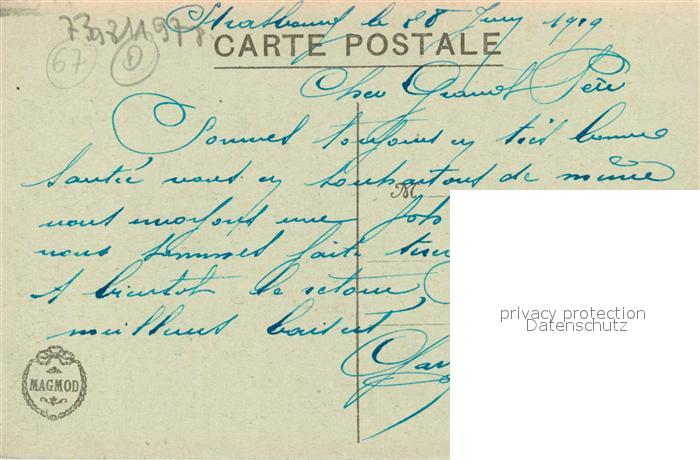 73921197
67
D
Strasbourg le 28 Juin 1919
CARTE POSTALE
Cher Grand Père
Sommes toujours en très bonne
santé vous en souhaitons de même
M
vous envoyons une
nous sommes faite
A bientôt le retour
meilleurs baisers
MAGMOD
privacy protection
Datenschutz